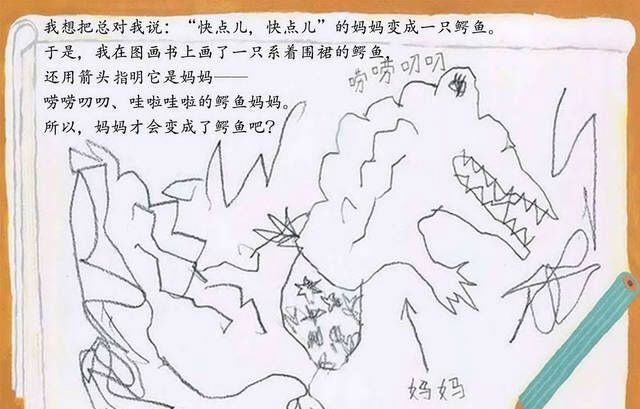 我想把总对我说：“快点儿，快点儿”的妈妈变成一只鳄鱼。
于是，我在图画书上画了一只系着围裙的鳄鱼，
还用箭头指明它是妈妈——
唠唠叨叨、哇啦哇啦的鳄鱼妈妈。
所以，妈妈才会变成了鳄鱼吧？
唠唠叨叨
妈妈